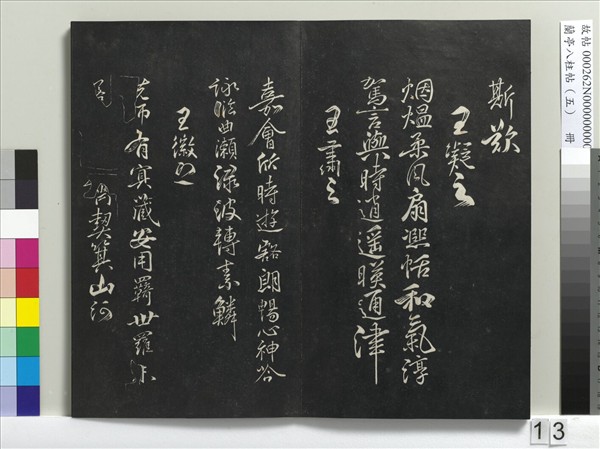 故帖 000262N000000000
蘭亭八柱帖（五） 冊
斯歎
王凝之
烟熅柔風扇熙怡和氣淳
駕言興時逍遥暎通津
王肅之
嘉會欣時遊豁朗暢心神吟
詠臨曲瀨淥波轉素鱗
王徽之
先師有冥藏安用羈世羅未
契箕山阿
13